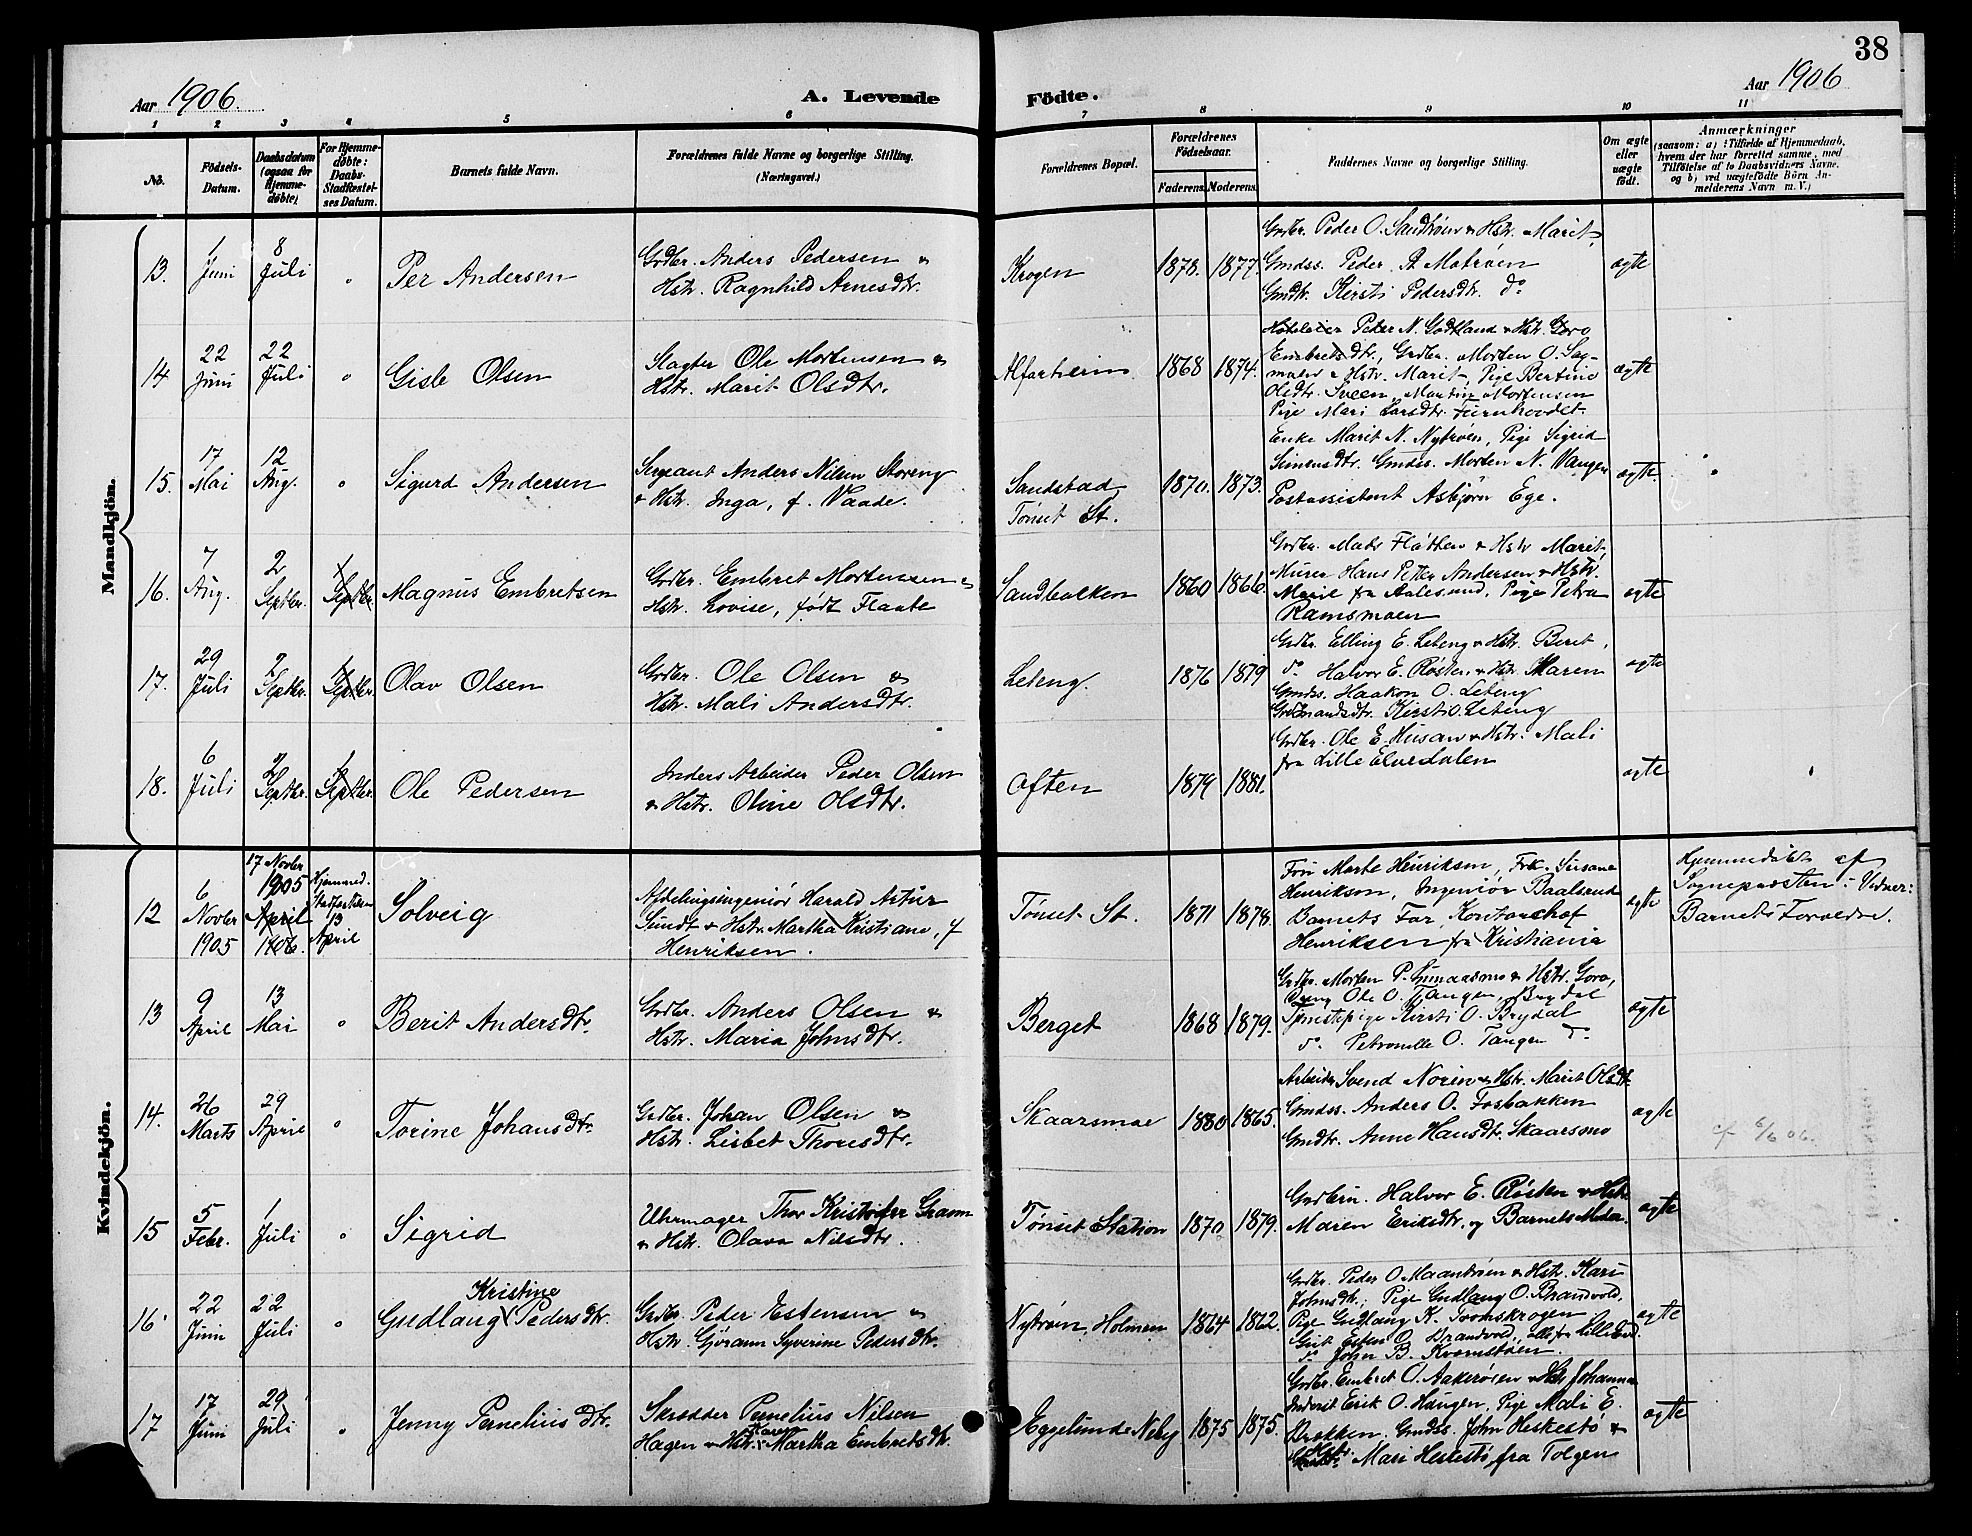 38
Aar 1906.
A. Levende
Födte.
Aar 1906
1 2 3 4 5 6 7 8 9 10 11
No.
Födsels-Datum.
Daabsdatum (ogsaa for Hjemme-døbte)
For Hjemme-døbte: Daabs-Stadfæstel-ses Datum.
Barnets fulde Navn.
Forældrenes fulde Navne og borgerlige Stilling.
(Næringsvei.)
Forældrenes Bopæl.
Forældrenes Födselsaar.
Faderens. Moderens.
Faddernes Navne og borgerlige Stilling.
Om ægte eller uægte födt.
Anmærkninger
(saasom: a) i Tilfælde af Hjemmedaab,
hvem der har forrettet samme, med
Tilföielse af to Daabsvidners Navne,
og b) ved uægtefödte Börn An-
melderens Navn m. V.)
Mandkjön.
13. 1 Juni 8 Juli " Per Andersen
Grdbr. Anders Pedersen &
Hstr. Ragnhild Arnesdtr.
Krogen 1878. 1877.
Grdbr. Peder O. Sandtrøen & Hstr. Marit,
Gmdss. Peder A. Motrøen
Gmdtr. Kersti Pedersdtr. do
ægte
14. 22 Juni 22 Juli " Gisle Olsen
Slagter Ole Mortensen &
Hstr. Marit Olsdtr.
Alfarheim 1868 1874.
Hoteleier Peder N. Godtland & Hstr. Goro
Embretsdtr., Grdbr. Morten O. Sag-
moen & Hstr. Marit, Pige Bertine
Olsdtr. Sveen, Martin Mortensen
Pige Mari Larsdtr. Furuhovdet.
ægte
15. 17 Mai 12 Aug. " Sigurd Andersen
Sergeant Anders Nilsen Storeng
& Hstr. Inga, f. Vaade.
Sandstad
Tønset St. 1870. 1873.
Enke Marit N. Nytrøen, Pige Sigrid
Simensdtr. Gmdss. Morten N. Vangen
Postassistent Asbjørn Ege.
ægte
16. 7 Aug. 2 Septbr. 1 Septbr. Magnus Embretsen
Grdbr. Embret Mortensen &
Hstr. Lovise, født Flaate
Sandbakken 1860 1866.
Grdbr. Mads Fløtten & Hstr. Marit,
Murer Hans Petter Andersen & Hstr.
Marie fra Aalesund, Pige Petra
Ramsmoen
ægte
17. 29 Juli 2 Septbr. 1 Septbr. Olav Olsen
Grdbr. Ole Olsen &
Hstr. Mali Andersdtr.
Leteng. 1876 1879
Grdbr. Elling E. Leteng & Hstr. Beret,
do Halvor E. Røsten & Hstr. Maren
Gmdss. Haakon O. Leteng
Grdmandsdtr. Kersti O. Leteng
ægte
18. 6 Juli 2 Septbr. 1 Septbr. Ole Pedersen
Inders Arbeider Peder Olsen
& Hstr. Oline Olsdtr.
Often 1879 1881.
Grdbr. Ole E. Husan & Hstr. Mali
fra Lille Elvedalen
ægte
Kvindekjön.
12 6 Novbr 1905
17 Novbr 1905 April 1906.
Hjemmed. Stadfæstelsen 13 April
Solveig
Afdelingsingeniør Harald Artur
Sundt & Hstr. Martha Kristiane, f
Henriksen.
Tønset St. 1871 1878.
Frøn Marte Henriksen, Frk. Susane
Henriksen, Ingeniør Baalsrud
Barnets Far, Kontorchef
Henriksen fra Kristiania
ægte
Hjemmedøbt af
Sognepræsten; Vidner:
Barnets Forældre.
13 9 April 13 Mai " Berit Andersdtr.
Grdbr. Anders Olsen &
Hstr. Maria Johnsdtr.
Berget 1868 1879.
Grdbr. Morten P. & Hstr. Goro,
Ung Ole O. Tangen, Brydal
Tjenestepige Kersti O. Brydal
do Petronelle O. Tangen do
ægte
14. 26 Marts 29 April " Torine Johansdtr.
Grdbr. Johan Olsen &
Hstr. Lisbet Thoresdtr.
Skaarsmoe 1880 1865.
Arbeider Svend Norin & Hstr. Marit Olsdtr
Gmdss. Anders O. Fosbakken
Gmdtr. Anne Hansdtr. Skaarsmo
ægte
cf 6/6 06.
15 5 Febr. 1 Juli " Sigrid
Uhrmager Thor Kristofer Gram
& Hstr. Olava Nilsdtr.
Tønset Station 1870 1879.
Grdbrn. Halvor E. Røsten & Hstr
Maren Eriksdtr. og Barnets Moder.
ægte
16. 22 Juni 22 Juli " Gudlaug Kristine Pedersdtr.
Grdbr. Peder Estensen &
Hstr. Gjørann Syverine Pedersdtr.
Nytrøen, Holmen 1864 1862.
Grdbr. Peder O. Maantrøen & Hstr. Kari
Johnsdtr., Pige Gudlaug O. Brandvold,
Pige Gudlaug K. Tromskrogen
Gut Esten O. Brandvold, alle fra Lilleelvd.
do John B. Kvernstøen.
ægte
17 17 Juni 29 Juli " Jenny Perneliusdtr.
Skrædder Pernelius Nilsen
Hagen & Hstr. Karen Martha Embretsdtr.
Eggelunde Neby 1875 1875.
Grdbr. Embret O. Aakerøien & Hstr Johanna
Inderst Erik O. Haugen, Pige Mali E.
Brokken. Gmdss. John Heskestø &
Hstr. Mari Heskestø, fra Tolgen
ægte